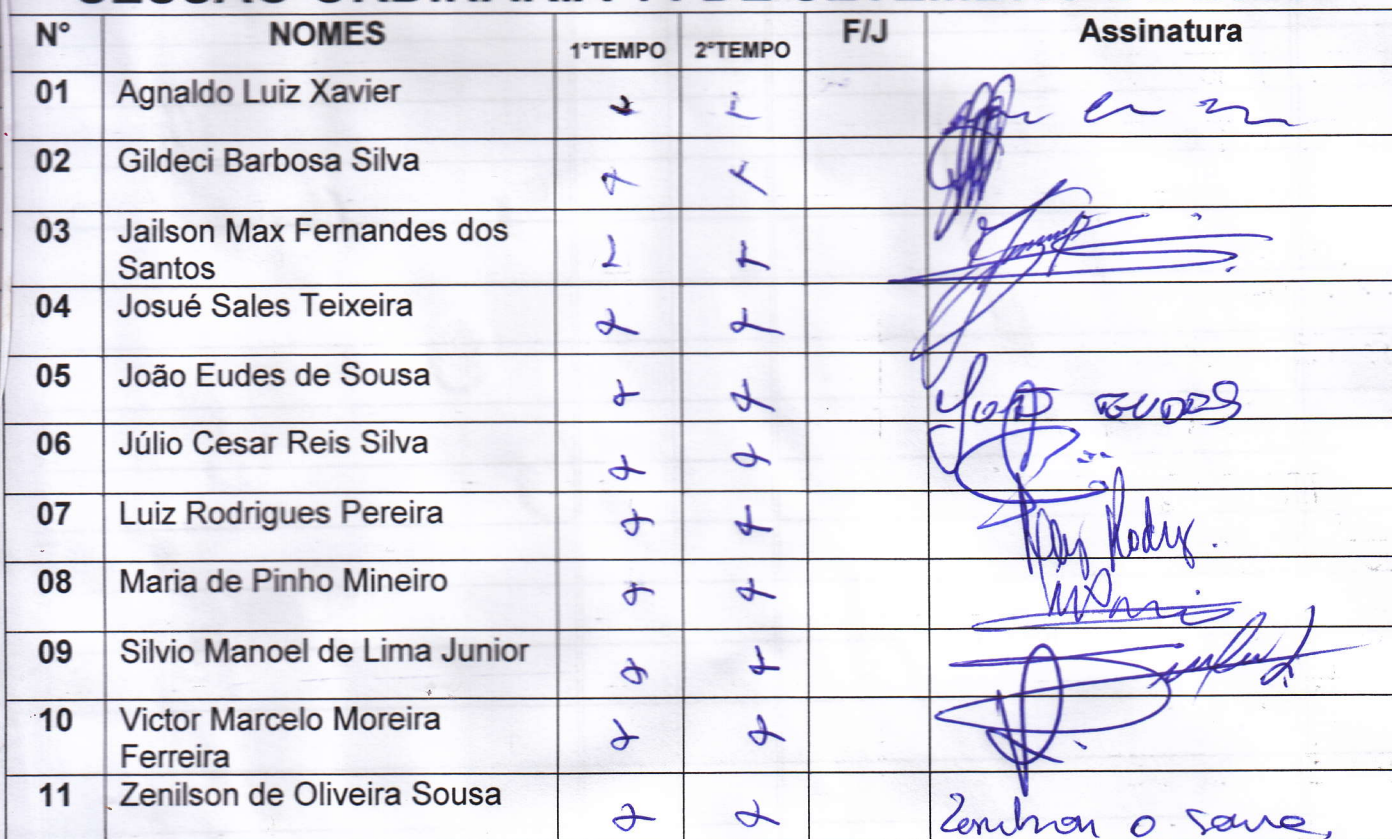 N° NOMES 1°TEMPO 2°TEMPO F/J Assinatura
01 Agnaldo Luiz Xavier
02 Gildeci Barbosa Silva
03 Jailson Max Fernandes dos
Santos
04 Josué Sales Teixeira
05 João Eudes de Sousa
06 Júlio Cesar Reis Silva
07 Luiz Rodrigues Pereira
08 Maria de Pinho Mineiro
09 Silvio Manoel de Lima Junior
10 Victor Marcelo Moreira
Ferreira
11 Zenilson de Oliveira Sousa